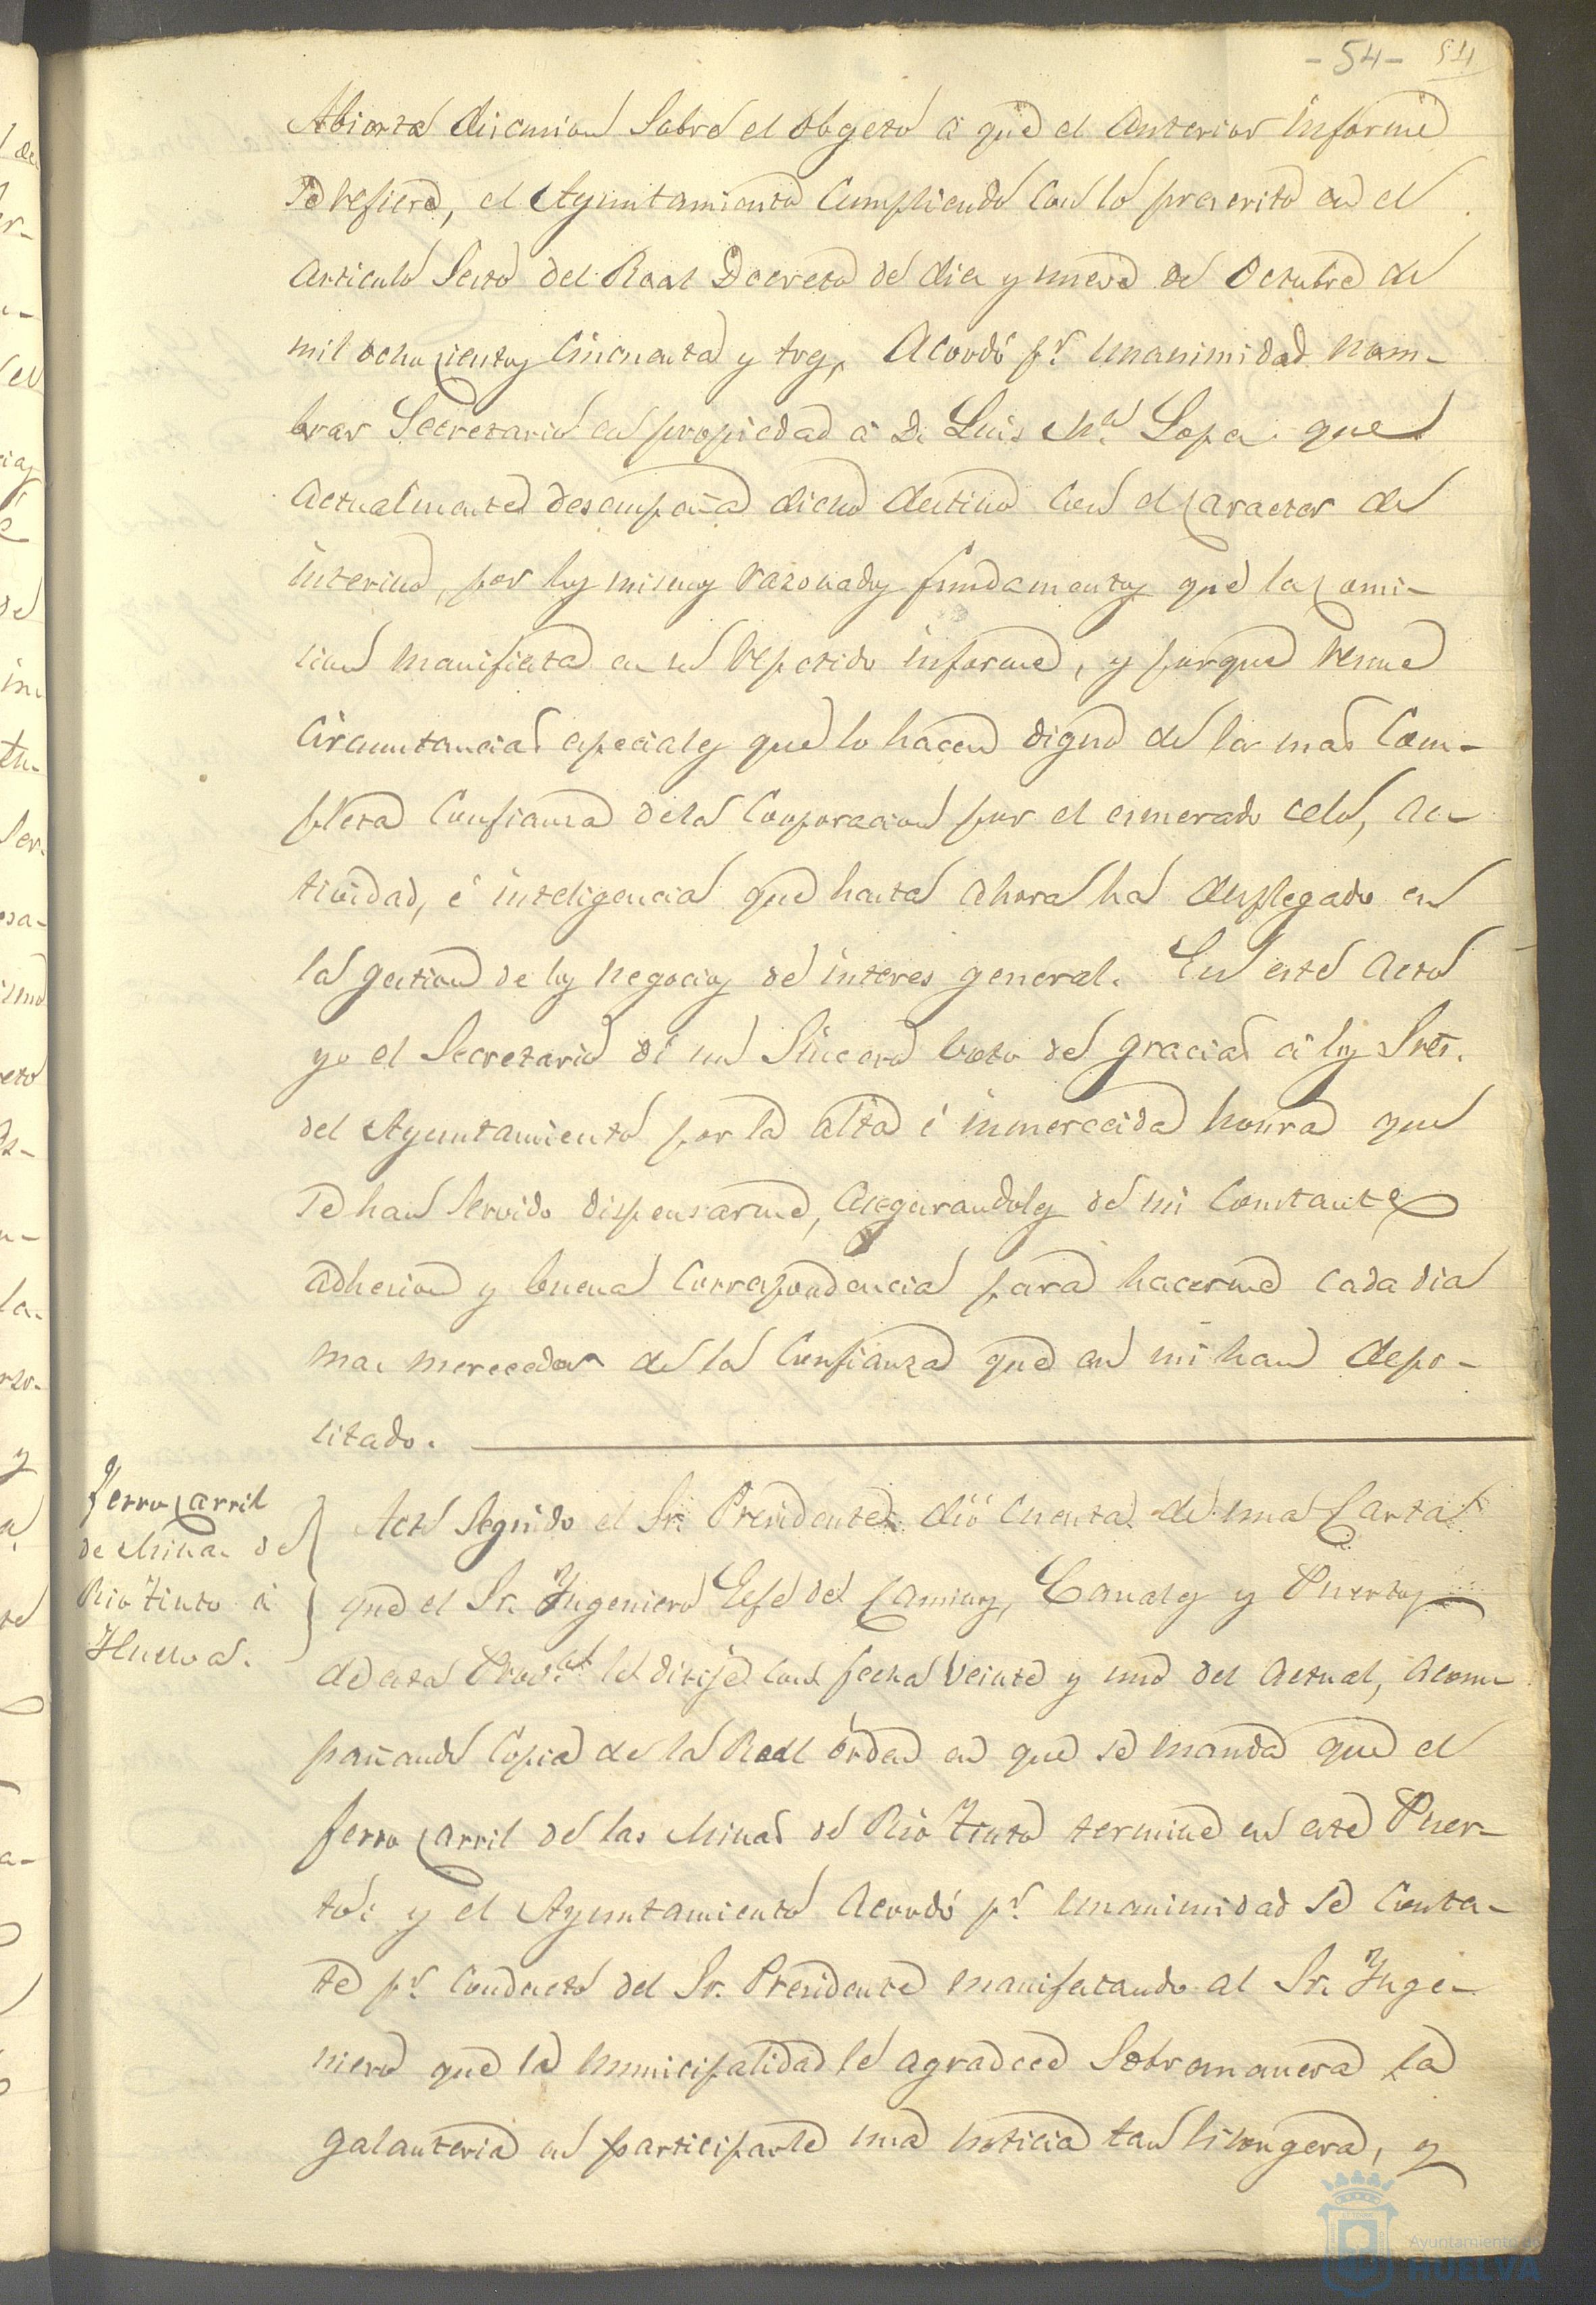 - 54 - 54
Abierta discusion sobre el obgeto á que el anterior informe
se refiere, el Ayuntamiento cumpliendo con lo prescrito en el
articulo sesto del Real Decreto de diez y nueve de Octubre de
mil ochocientos cincuenta y tres, acordó pr. unanimidad nom-
brar Secretario en propiedad á D. Luis Ma. Lopez que
actualmente desempeña dicho destino con el caracter de
interino, por los mismos razonados fundamentos que la comi-
sion manifiesta en su repetido informe, y porque reune
circunstancias especiales que lo hacen digno de la mas com-
pleta confianza de la Corporacion por el esmerado celo, ac-
tividad, é inteligencia que hasta ahora ha desplegado en
la gestion de los negocios de interes general. En este acto
yo el Secretario di un sincero voto de gracias á los Sres.
del Ayuntamiento por la alta é inmerecida honra que
se han servido dispensarme, asegurandoles de mi constante
adhesion y buena correspondencia para hacerme cada dia
mas merecedor de la confianza que en mi han depo-
sitado.
Ferro carril
de Minas de
Rio Tinto á
Huelva.
Acto seguido el Sr. Presidente dió cuenta de una carta
que el Sr. Ingeniero Gefe de Caminos, Canales y Puertos
de esta Prova. le dirije con fecha veinte y uno del actual, acom-
pañando copia de la Real órden en que se manda que el
ferro carril de las Minas de Rio Tinto termine en este Puer-
to; y el Ayuntamiento acordó pr. unanimidad se contes-
te pr. conducto del Sr. Presidente manifestando al Sr. Inge-
niero que la municipalidad le agradece sobremanera la
galanteria en participarle una noticia tan lisongera, y
Ayuntamiento de
HUELVA